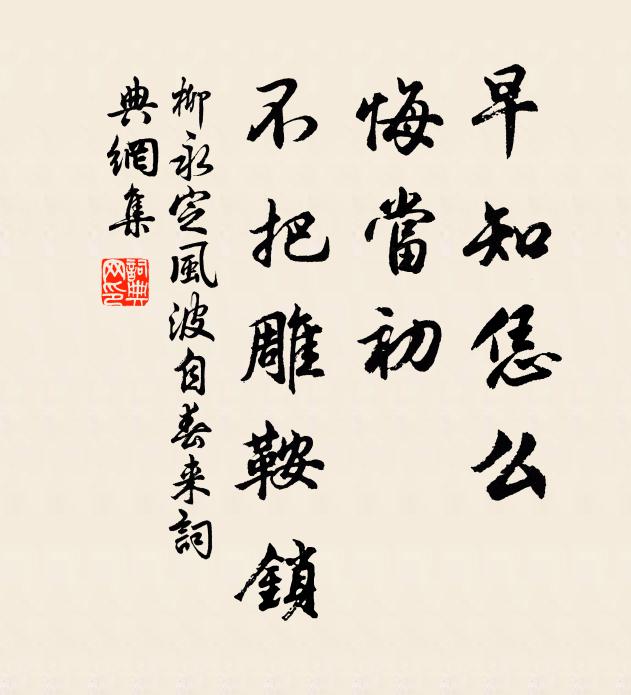 早知恁么
悔當初
不把雕鞍鎖
柳永定風波自春来詞
典網集
詞典
网印